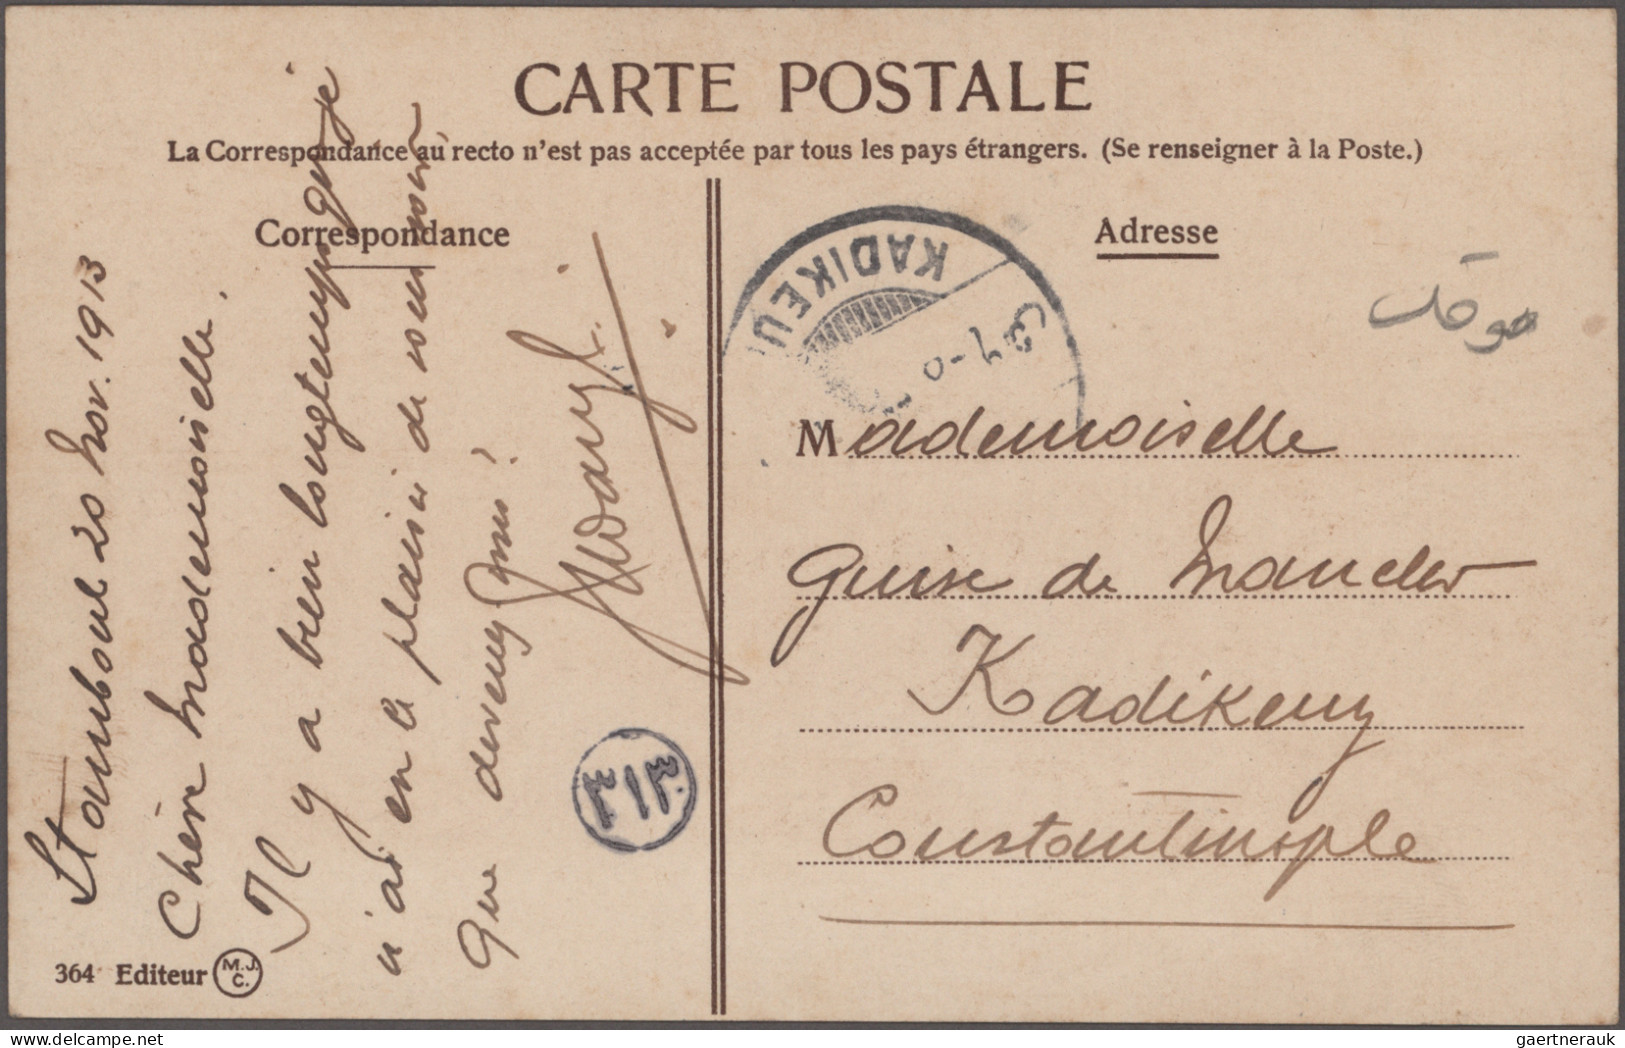 CARTE POSTALE
La Correspondance au recto n'est pas acceptée par tous les pays étrangers. (Se renseigner à la Poste.)
Correspondance
Stamboul 20 Nov. 1913
Chère Mademoiselle.
Il y a bien longtemps que je
n'ai eu le plaisir de vous voir
Que devenez vous?
364 Editeur M.J.C.
٣١٣
KADIKEUI
Adresse
Mademoiselle
Guise de
Kadikeuy
Constantinople
delcampe.net
gaertnerauk